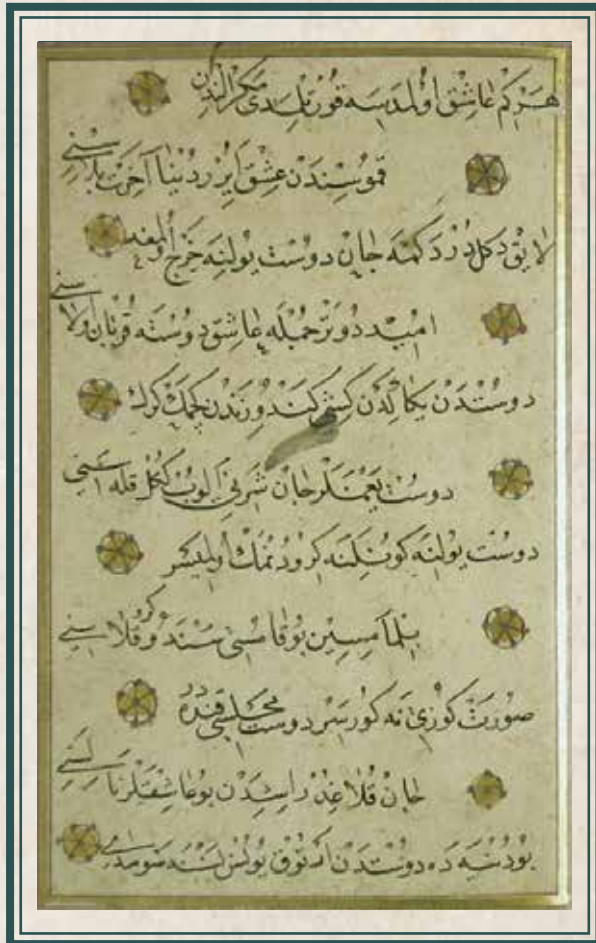 هر كم عاشق اولمدسه قورتلمدی مكر الندن
قموسندن عشق ایرر دنیا آخرت یاراسنی
لایق دكل در دكمه جان دوست یولنه خرج اولمغه
امید دوتر جمله عاشق دوسته قربان اولاسنی
دوستدن یكا كدن كشی كندوزندن كچمك كرك
دوست یغملر جان الوب ككل
دوست یولنه كرو دونمك اولمیسر
بلمامسین بو سنده كرو قلاسنی
صورت كوزی نه كورسر دوست مجلسی قنده در
جان قلاغیدر اشیدن بو عاشقلر ناله سنی
بو دنیه ده دوستدن ارتوق یونس نسنه سومدی